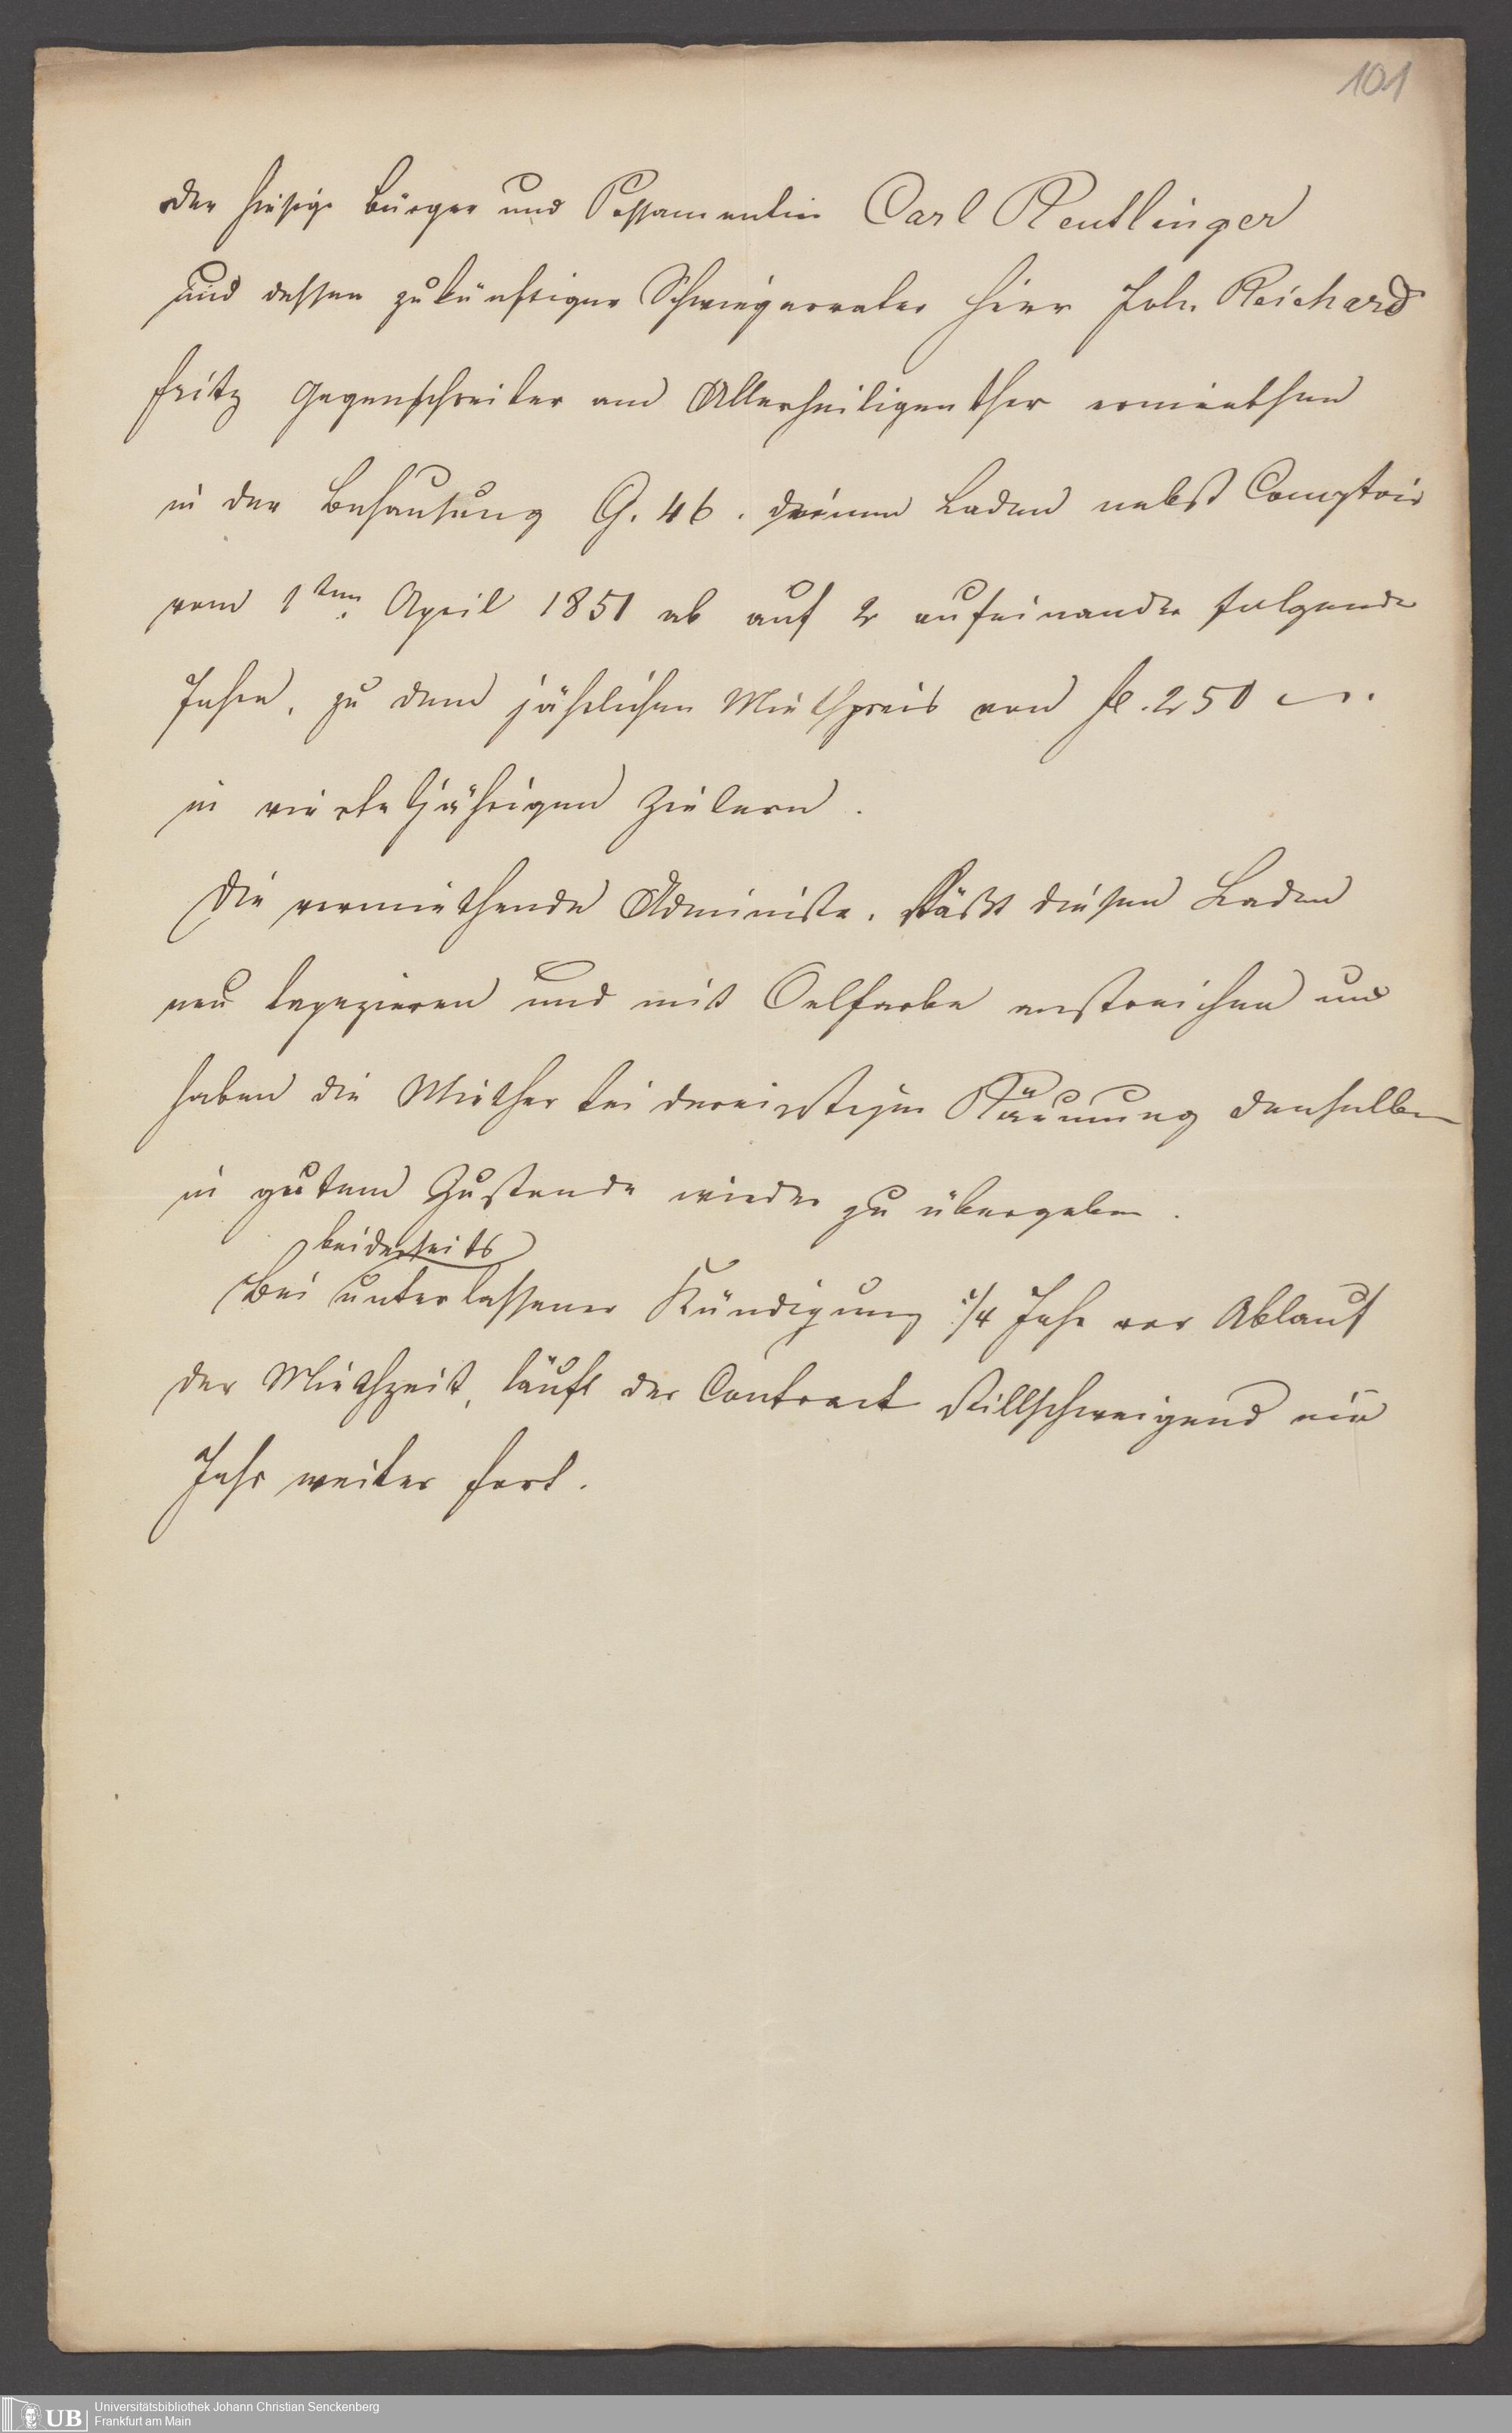 101
Der hiesige Bürger und Possamentir Carl Reutlinger
und dessen zukünftiger Schwiegervater Herr Joh. Reichard
Fritz Gegenschreiber am Allerheiligenthor ermiethen
in der Behausung G. 46. einen Laden nebst Comptoir
vom 1ten April 1851 ab auf 2 aufeinander folgende
Jahre, zu dem jährlichen Miethpreis von fl. 250 —.
in vierteljährigen Zielern.
Die vermiethende Administr. läßt diesen Laden
neu tapezieren und mit Oelfarbe anstreichen und
haben die Miether bei dereinstiger Räumung denselben
in gutem Zustande wieder zu übergeben.
beiderseits
Bei unterlassener Kündigung 1/4 Jahr vor Ablauf
der Miethzeit, läuft der Contract stillschweigend ein
Jahr weiter fort.
UB
Universitätsbibliothek Johann Christian Senckenberg
Frankfurt am Main